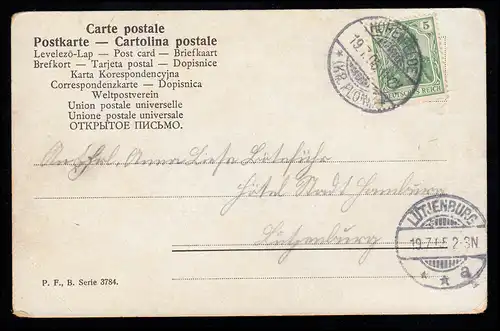 Carte postale
Postkarte — Cartolina postale
Levelező-Lap — Post card — Briefkaart
Brefkort — Tarjeta postal — Dopisnice
Karta Korespondencyjna
Correspondenzkarte — Dopisnica
Weltpostverein
Union postale universelle
Unione postale universale
ОТКРЫТОЕ ПИСЬМО.
5
DEUTSCHES REICH
Anna Liese
Hôtel Stadt Hamburg
Lütjenburg
LÜTJENBURG
19.7.05 2-3N
* * a
P. F., B. Serie 3784.